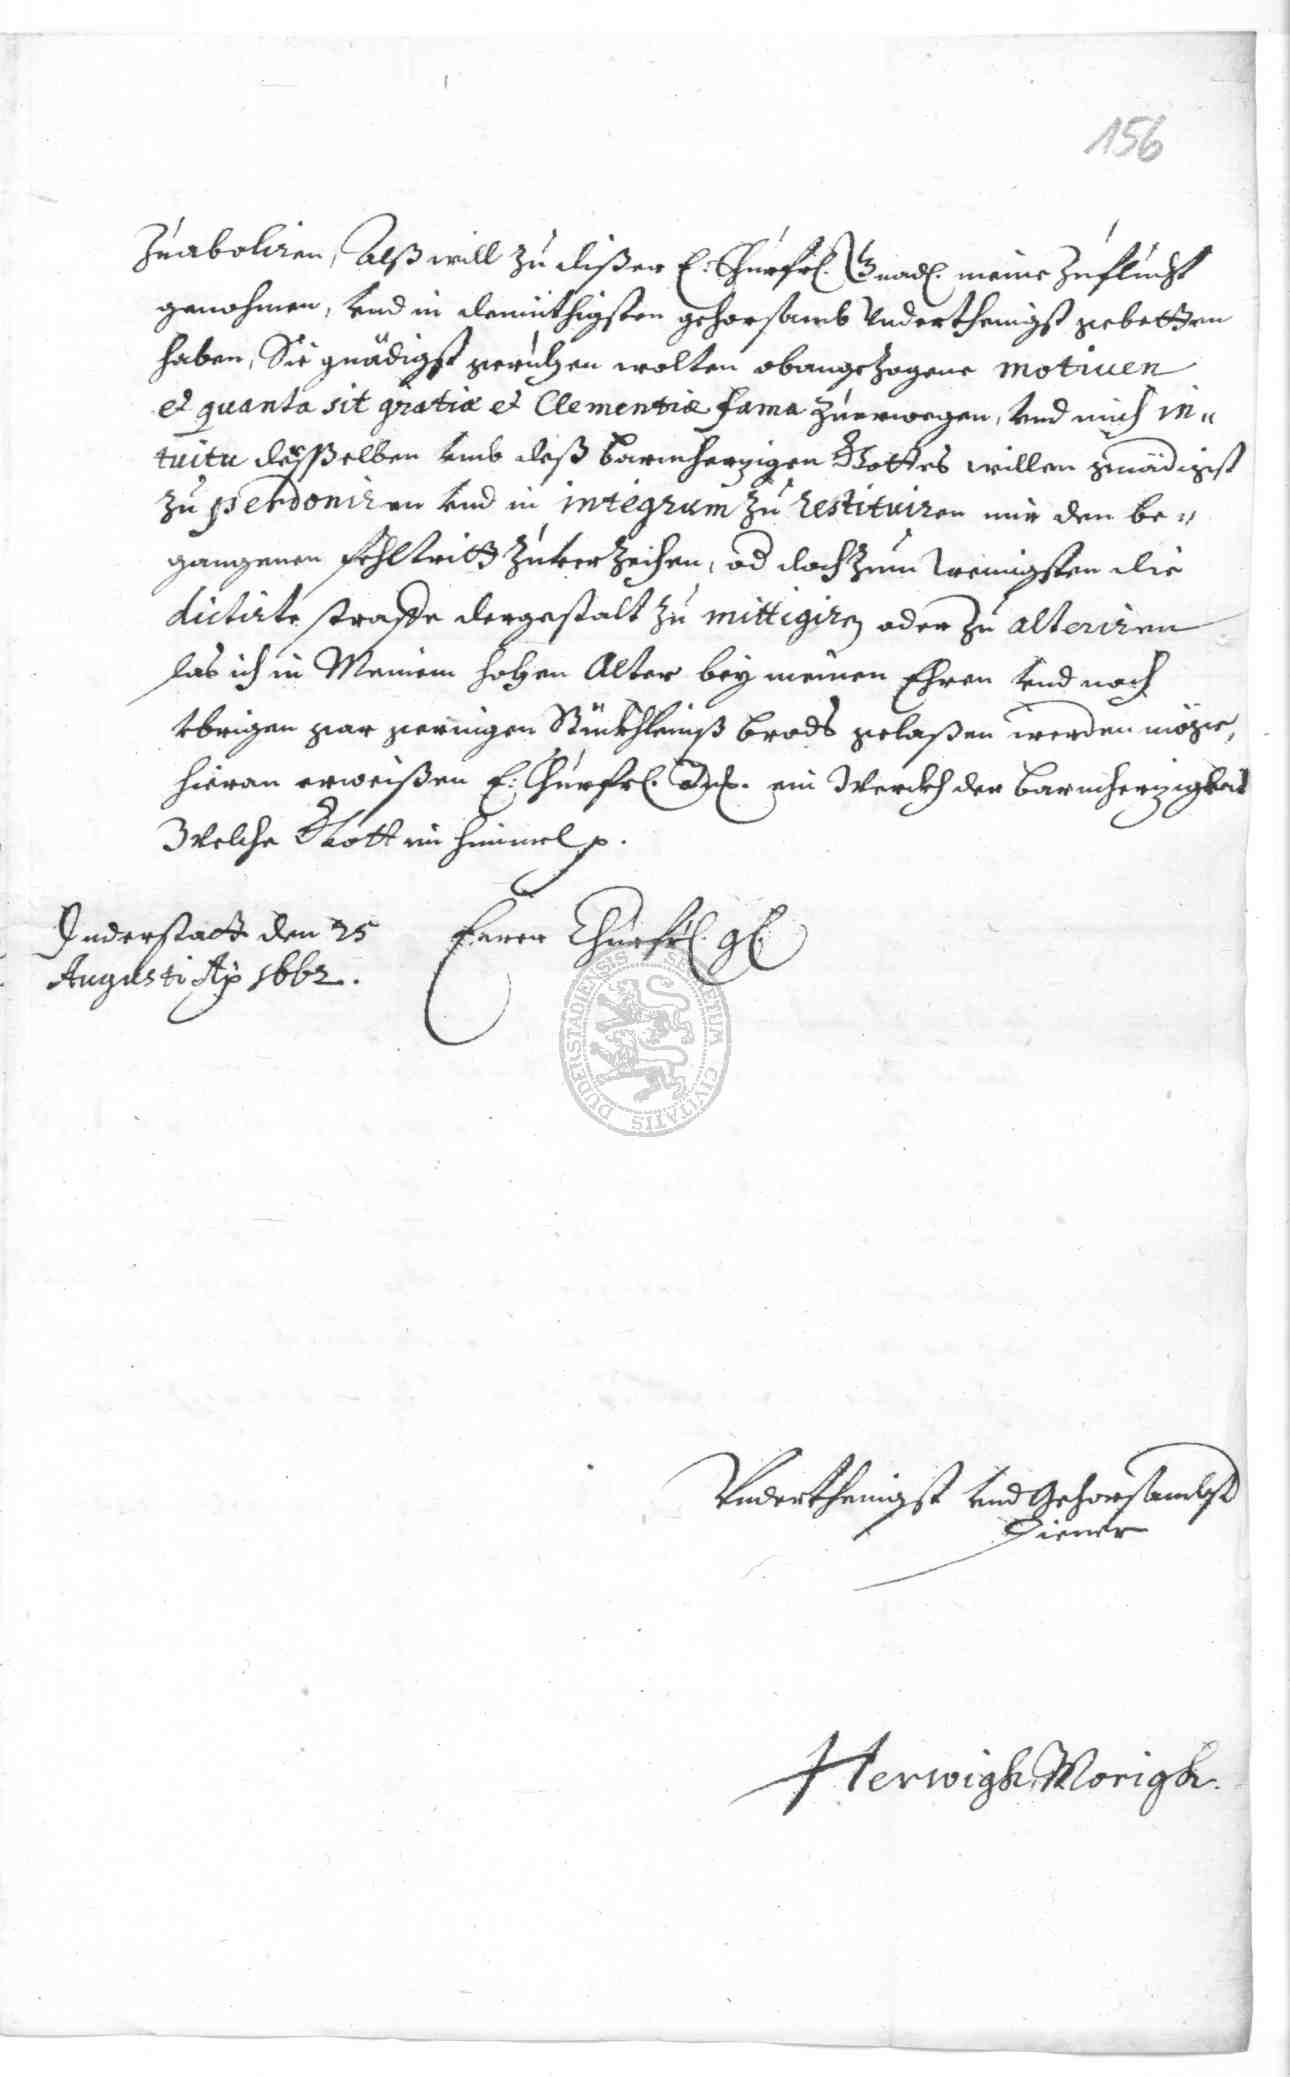 156
Zuaboliren, Alß will zu dißer E: Churfrl. Gnad. meine Zuflucht
genohmen, vnd in demüthigsten gehorsamb Vnderthenigst gebetten
haben, Sie gnädigst geruhen wolten obangezogene motiven
et quanta sit gratiæ et Clementiæ fama zuerwegen, vnd mich in=
tuitu deßselben vmb deß barmherzigen Gottes willen gnädigst
zu perdoniren vnd in integrum zu restituiren mir den be=
gangenen fehltritt zuverzeihen, od doch zum wenigsten die
dictirte straffe dergestalt zu mittigiren oder zu alteriren
das ich in Meinem hohen Alter bey meinen Ehren vnd noch
vbrigen gar geringen Stückhleinß brods gelaßen werden möge,
hieran erweißen E: Churfrl. Gn. ein Werckh der barmherzigkeit
Welche Gott im himmel p.
Duderstadt den 25
Augusti Ao 1662.
Eurer Churfrl. gl
SECRETUM CIVITATIS DUDERSTADIENSIS
Vnderthenigst vnd Gehorsambst
Diener
Herwigh Morigh.